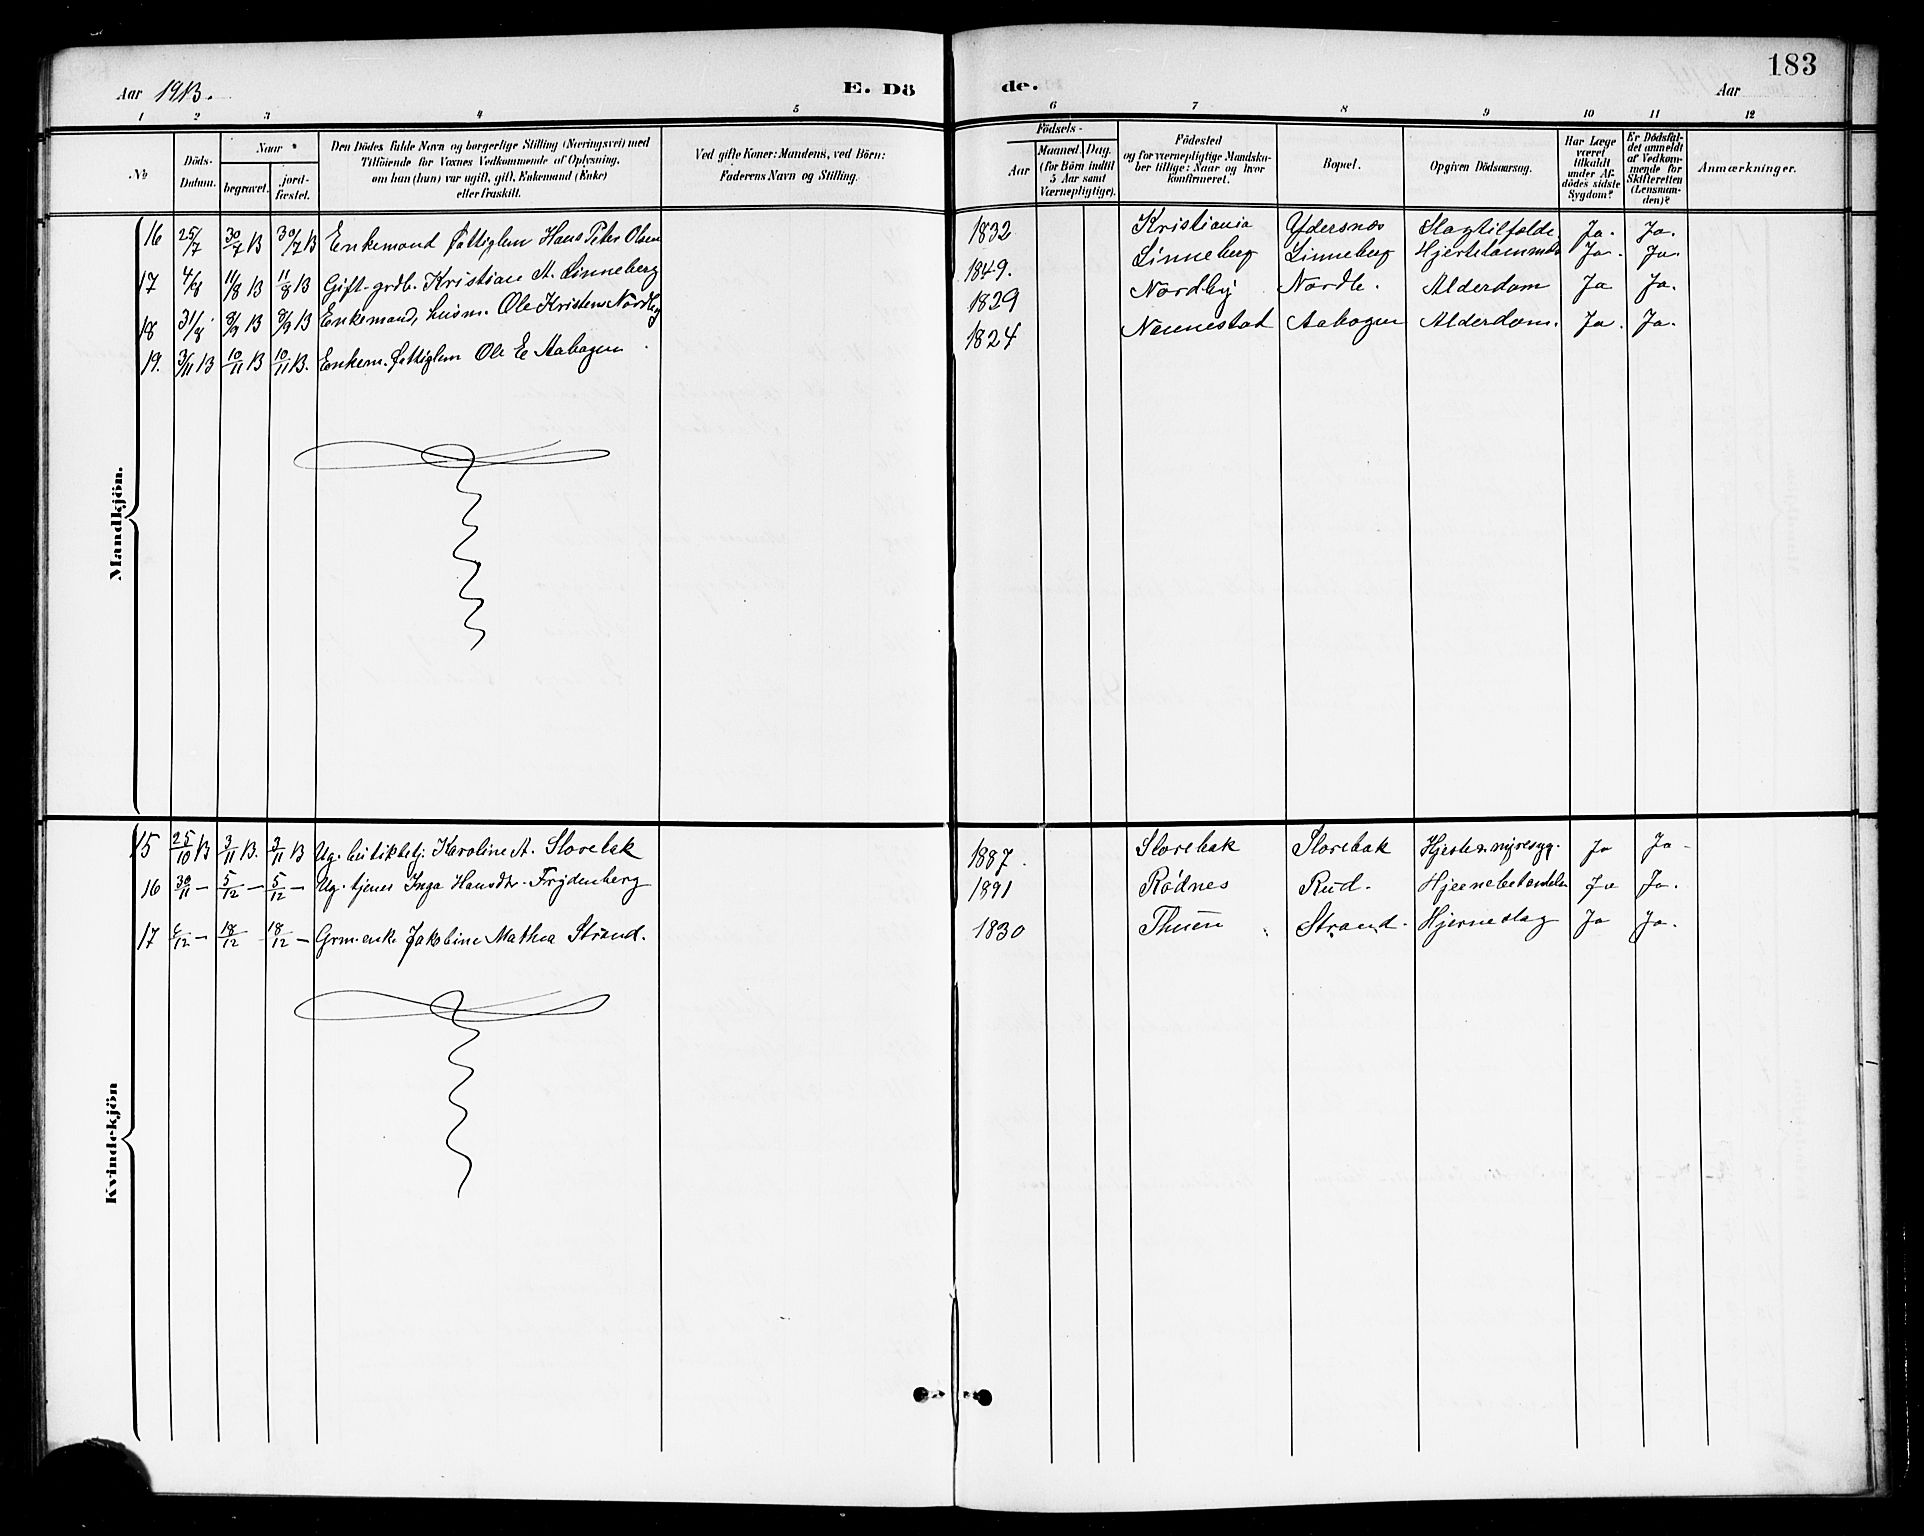 Aar 1913. E. Dö de. Aar 183
1 2 3 4 5 6 7 8 9 10 11 12
No
Döds-Datum.
Naar
begravet.
jord-fæstet.
Den Dödes fulde Navn og borgerlige Stilling (Næringsvei) med
Tilföiende for Voxnes Vedkommende af Oplysning,
om han (hun) var ugift, gift, Enkemand (Enke)
eller fraskilt.
Ved gifte Koner: Mandens, ved Börn:
Faderens Navn og Stilling.
Födsels-
Aar
Maaned. Dag.
(for Börn indtil
5 Aar samt
Værnepligtige).
Födested
og for værnepligtige Mandska-
ber tillige: Naar og hvor
konfirmeret.
Bopæl.
Opgiven Dödsaarsag.
Har Læge
været
tilkaldt
under Af-
dödes sidste
Sygdom?
Er Dödsfal-
det anmeldt
af Vedkom-
mende for
Skifteretten
(Lensman-
den)?
Anmærkninger.
Mandkjön.
16 25/7 30/7 13 30/7 13 Enkemand fattiglem Hans Peter Olsen 1832 Kristiania Ydersnæs Slagtilfælde Ja. Ja.
17 4/8 11/8 13 11/8 13 Gift grdb. Kristian A. Linneberg 1849. Linneberg Linneberg Ja. Ja.
18 31/8 8/9 13 8/9 13 Enkemand, husm. Ole Kristens Nordby 1829 Nordby Nordb. Alderdom Ja Ja.
19. 3/11 13 10/11 13 10/11 13. Enkem. fattiglem Ole E Aabogen 1824 Nannestad Aabogen Alderdom. Ja. Ja.
Kvindekjön
15 25/10 13 3/11 13. 3/11 13 Ug. butikbetj. Karoline A. Storebak 1887. Storebak Storebak Ja Ja
16 30/11 - 5/12 - 5/12 - Ug. tjener Inga Hansdtr. Frydenberg 1891 Rødnes Rud. Ja Ja.
17 6/12 - 18/12 18/12 - Grm. enke Jakobine Mathea Strand. 1830 Thuen Strand. Hjerneslag Ja Ja.